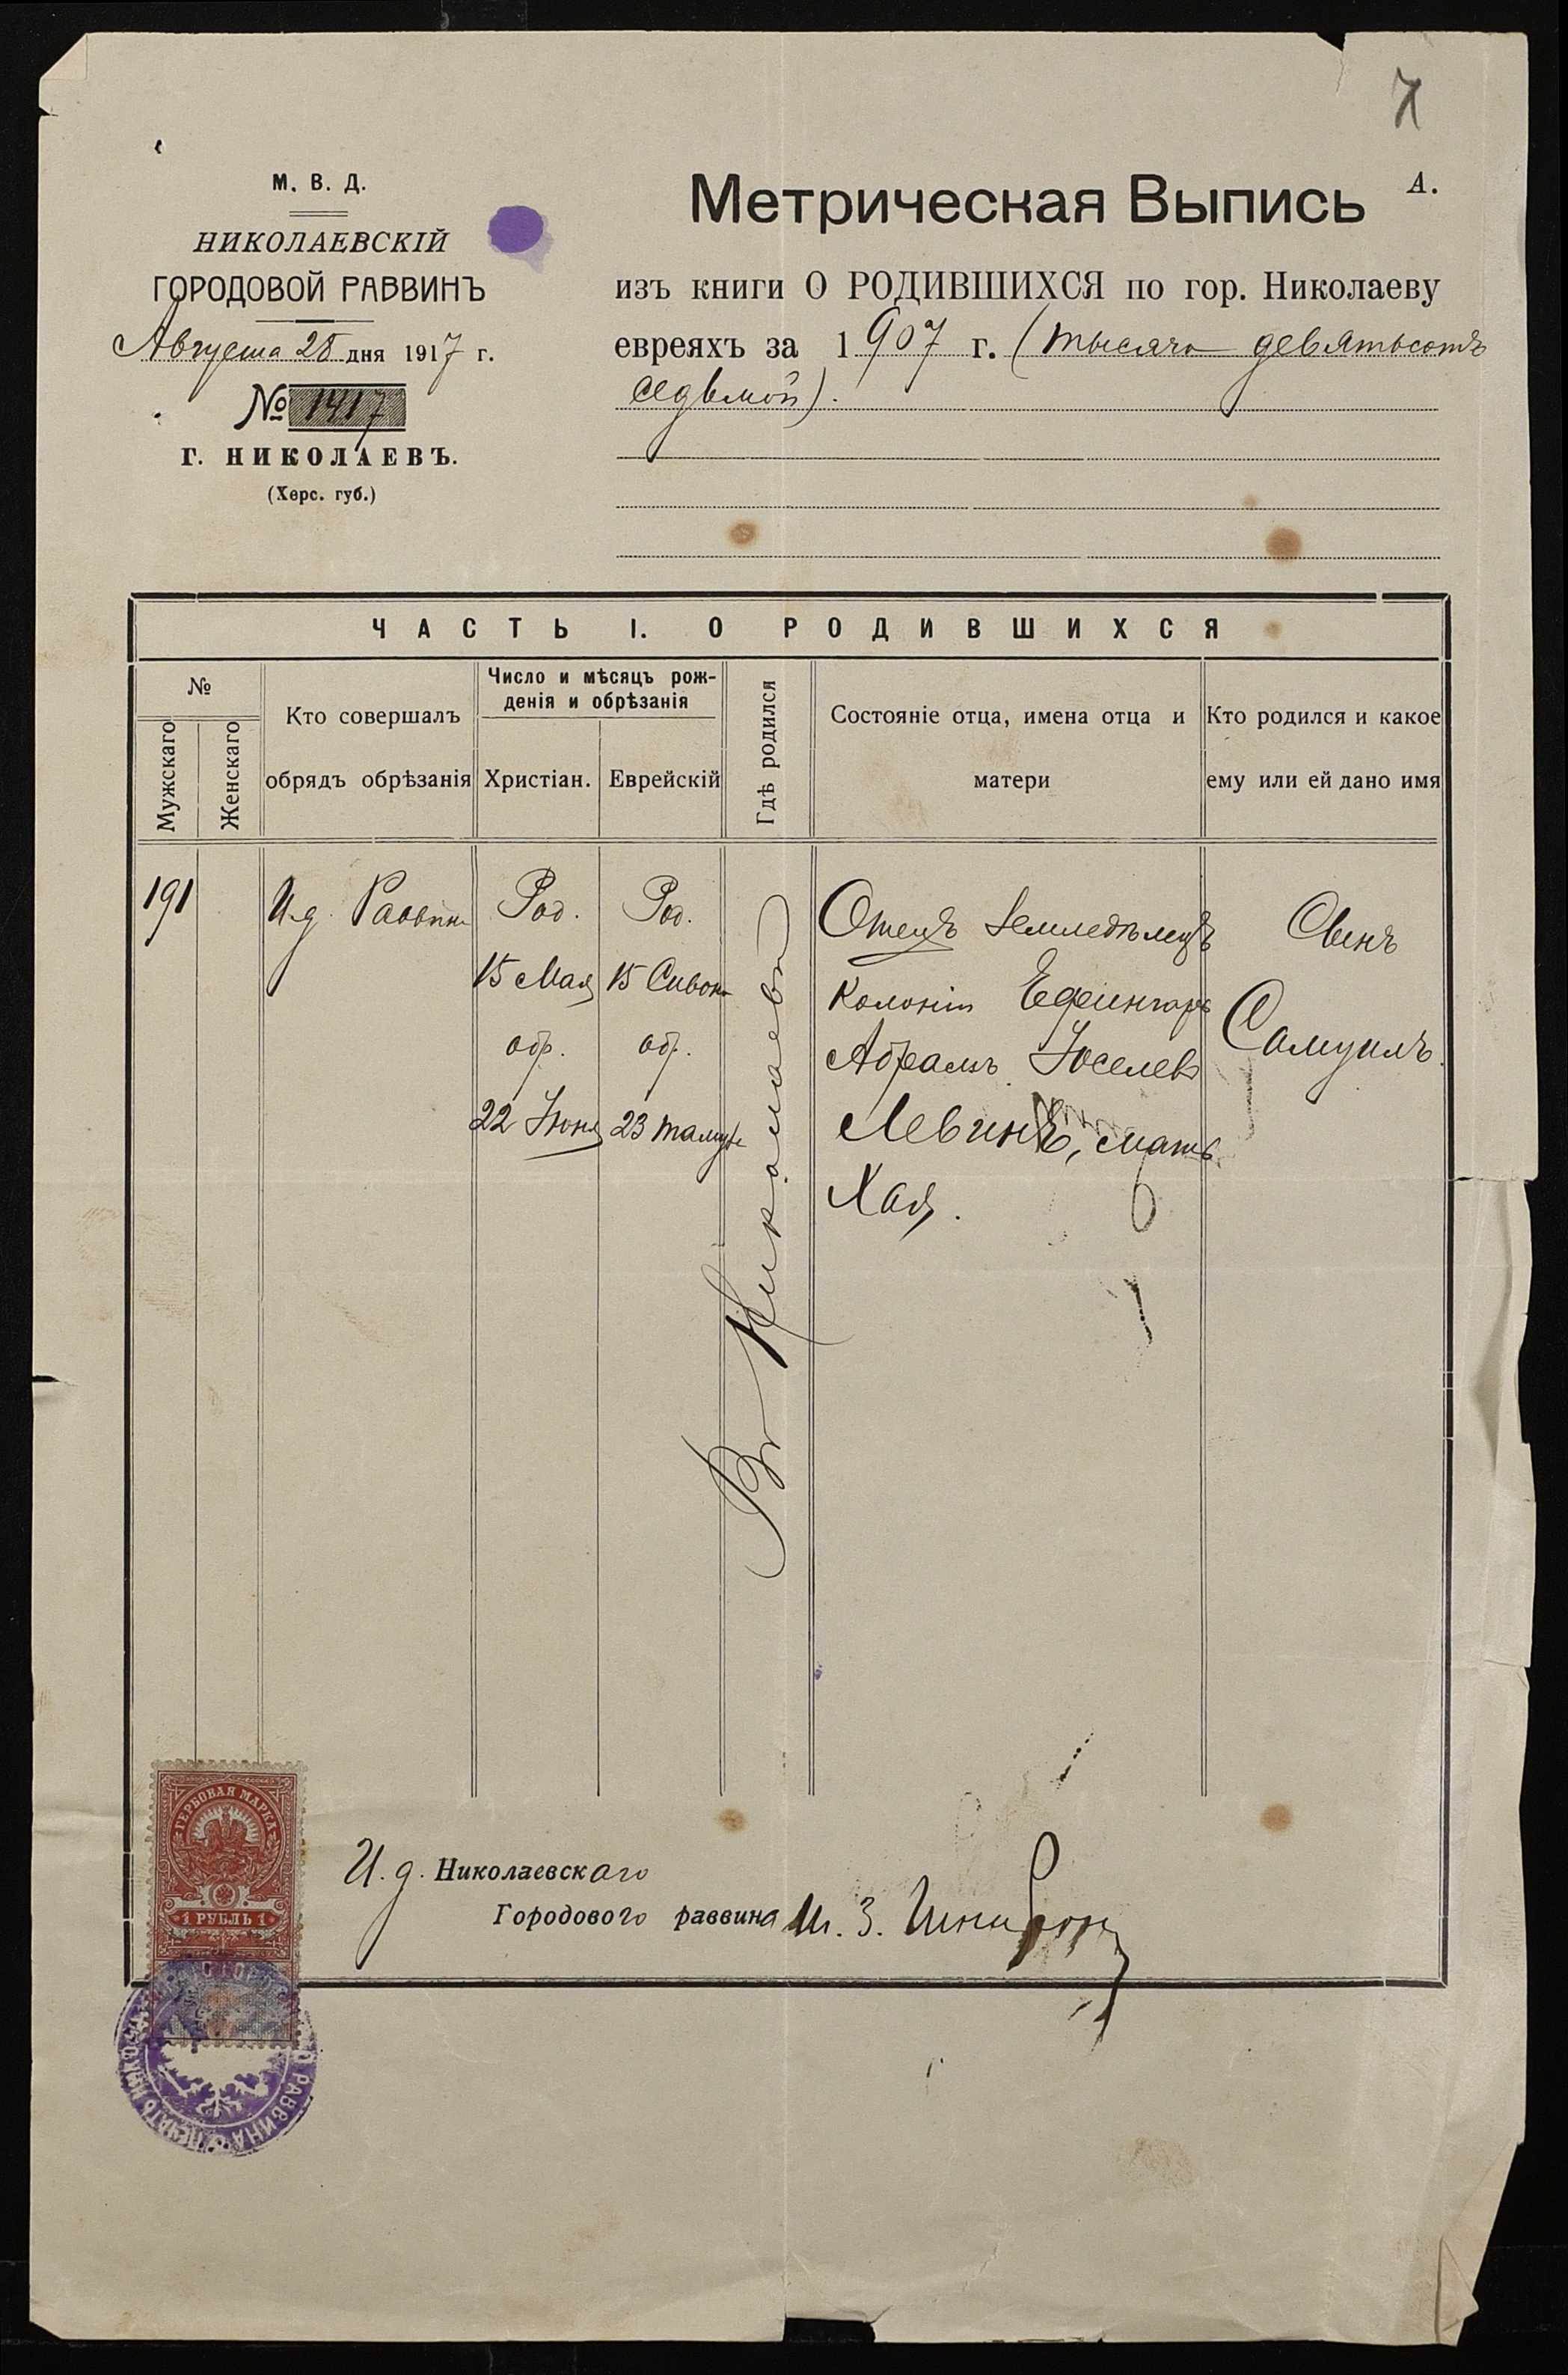 7
М. В. Д.
НИКОЛАЕВСКІЙ
ГОРОДОВОЙ РАВВИНЪ
Августа 28 дня 1917 г.
№ 1417
г. НИКОЛАЕВЪ.
(Херс. губ.)
Метрическая Выпись А.
изъ книги О РОДИВШИХСЯ по гор. Николаеву
евреяхъ за 1907 г. (тысяча девятьсотъ
седьмой).
ЧАСТЬ I. О РОДИВШИХСЯ
№
Мужскаго
Женскаго
Кто совершалъ
обрядъ обрѣзанія
Число и мѣсяцъ рож-
денія и обрѣзанія
Христіан.
Еврейскій
Гдѣ родился
Состояніе отца, имена отца и
матери
Кто родился и какое
ему или ей дано имя
191
И.д. Раввин
Род.
15 Мая
обр.
22 Іюня
Род.
15 Сивон
обр.
23 тамуз
Въ Николаевѣ
Отецъ земледѣлецъ
колоніи Ефингаръ
Абрамъ Іоселев
Левинъ, мать
Хая.
Сынъ
Самуилъ.
ГЕРБОВАЯ МАРКА
1 РУБЛЬ 1
И. д. Николаевскаго
Городового раввина
РАВВИНА
ПЕЧАТЬ